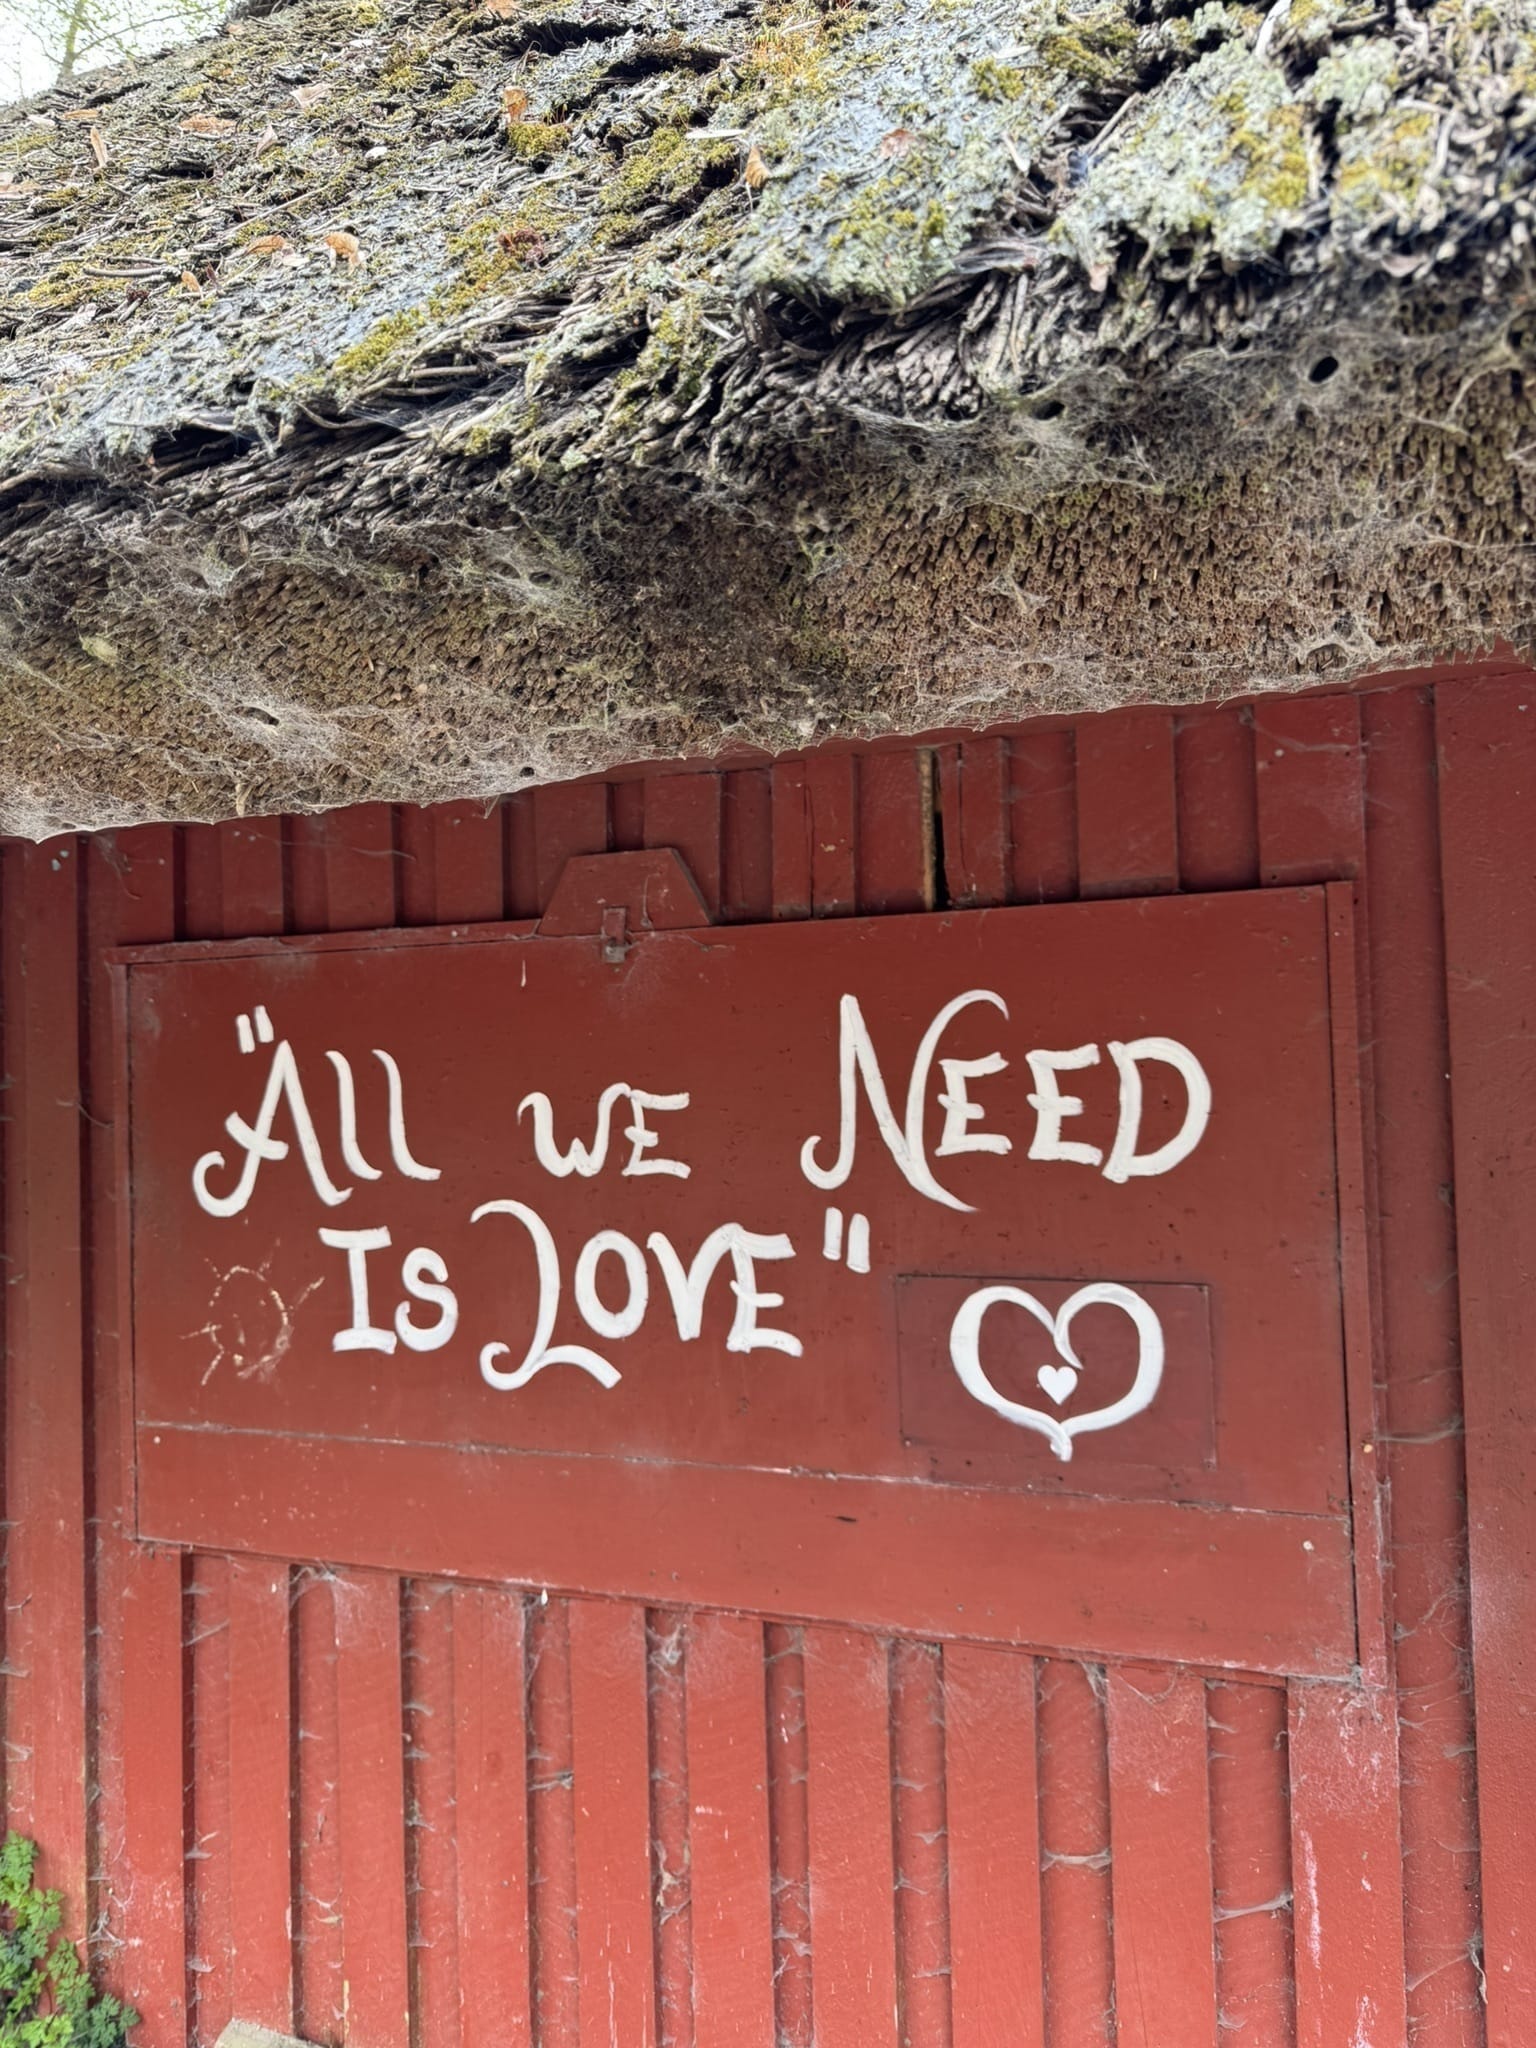 "All WE NEED
Is LOVE"